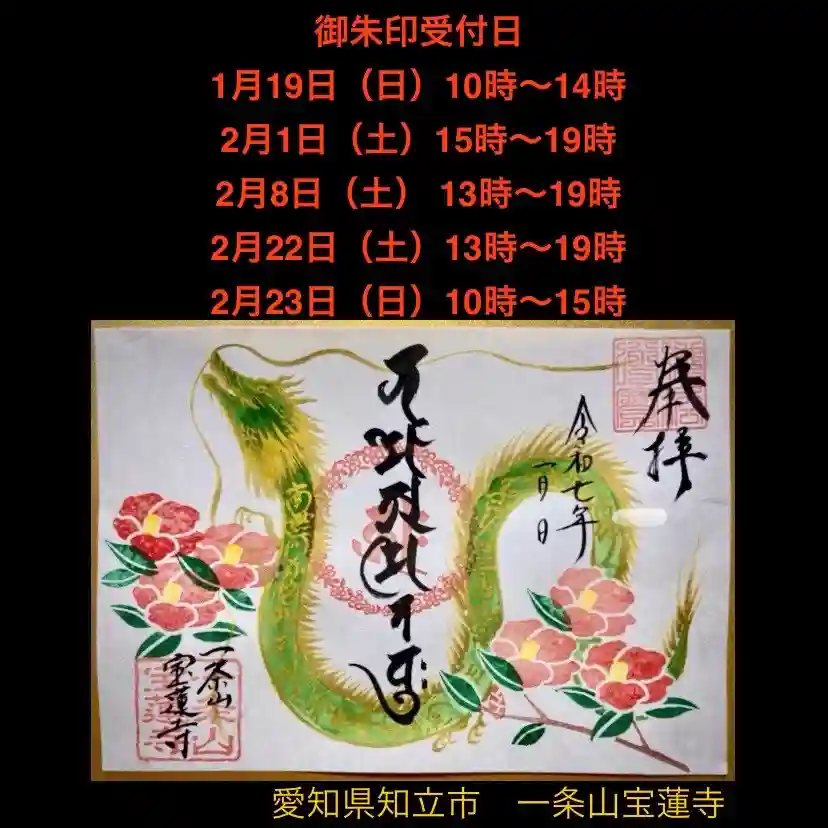 御朱印受付日
1月19日（日）10時〜14時
2月1日（土）15時〜19時
2月8日（土） 13時〜19時
2月22日（土）13時〜19時
2月23日（日）10時〜15時
奉拝
令和七年
一月 日
一条山
宝蓮寺
愛知県知立市　一条山宝蓮寺